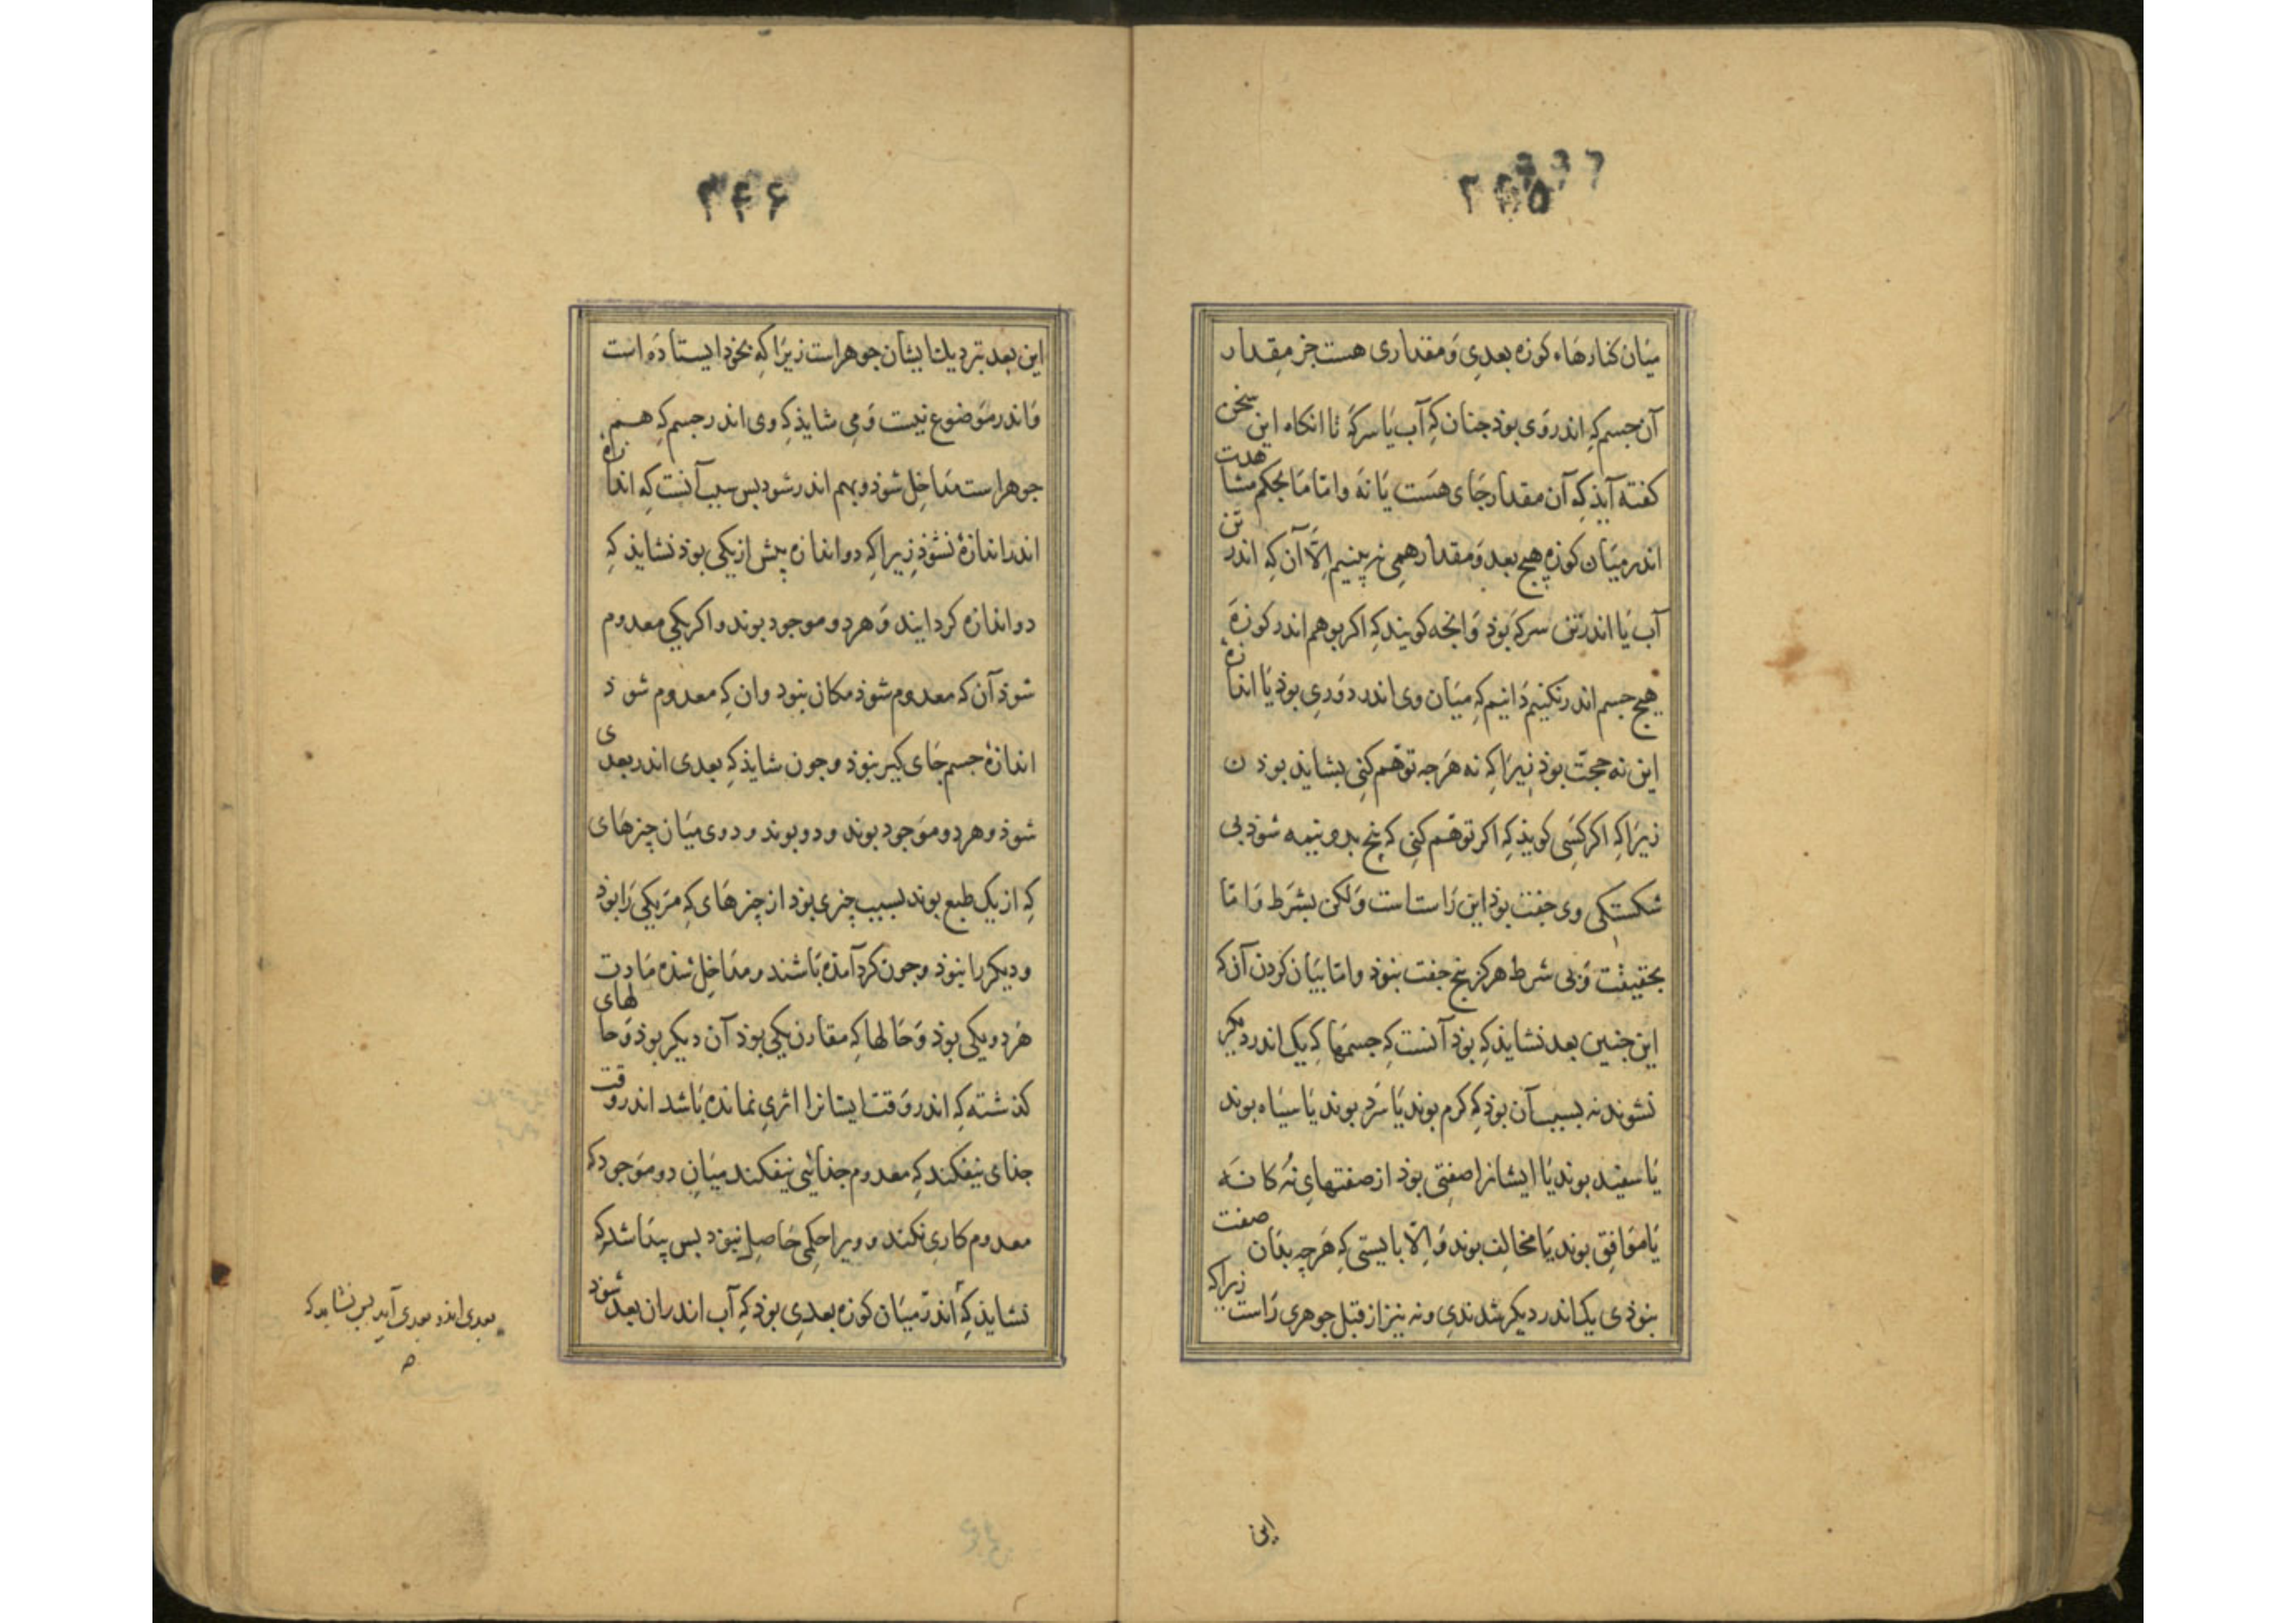 میان کنارهاء کوزه بعدی و مقداری هست جز مقدار
آن جسم که اندر وی بوذ جنان که آب یا سرکه تا انکاه این سخن
کفته آیذ که آن مقدار جای هست یا نه و اما ما بحکم مشاهدت
اندر میان کوزه هیچ بعد و مقدار همی نه بینیم الّا آن که اندر تن
آب یا اندر تن سرکه بوذ و انجه کویند که اکر بوهم اندر کوزه
هیچ جسم اندر نکنیم دانیم که میان وی اندر دوری بوذ یا اندازه
این نه حجت بوذ زیرا که نه هرجه توهّم کنی بشاید بوذن
زیرا که اکر کسی کویذ که اکر توهّم کنی که پنج بدو نیمه شوذ بی
شکستکی وی جفت بوذ این راست است ولکن بشرط و امّا
بحقیقت و بی شرط هرکز پنج جفت نبوذ و امّا بیان کردن آن که
این جنین بعد نشایذ که بوذ آنست که جسمها که یک اندر دیکر
نشوند نه بسبب آن بوذ که کرم بوند یا سرد بوند یا سیاه بوند
یا سفید بوند یا ایشانرا صفتی بوذ از صفتهای نُه کانه
یا موافق بوند یا مخالف بوند و الّا بایستی که هرچه بدان صفت
نبوذی یک اندر دیکر شدندی و نه نیز از قبل جوهری راست زیرا که
این
۲۴۶
این بعد نزدیک ایشان جوهر است زیرا که بخوذ ایستاده است
و اندر موضوع نیست و می شایذ که وی اندر جسم که هم
جوهر است مداخل شوذ و بهم اندر شود بس سبب آنست که اندازه
اندر اندازه نشوذ زیرا که دو اندازه بیش از یکی بوذ نشاید که
دو اندازه کرد ایند و هر دو موجود بوند و اکر یکی معدوم
شوذ آن که معدوم شوذ مکان نبود و ان که معدوم شوذ
اندازه جسم جای کیر نبوذ و جون شایذ که بعدی اندر بعدی
شوذ و هر دو موجود بوند و دو بوند و دوی میان چیزهای
که از یک طبع بوند بسبب چیزی بوذ از چیزهای که مر یکی را بوذ
و دیکر را نبوذ و جون کرد آمذه باشند و مداخل شده مادت
هر دو یکی بوذ و حالها که مقارن یکی بوذ آن دیکر بوذ و حالهای
کذشته که اندر وقت ایشانرا اثری نمانده باشد اندر وقت
جذای نیفکند که معدوم جذائی نیفکند میان دو موجود که
معدوم کاری نکند و ویرا حکمی حاصل نبود بس پیدا شد که
نشایذ که اندر میان کوزه بعدی بوذ که آب اندر ان بعد شوذ
بعدی اندر بعدی آید بس نشاید که